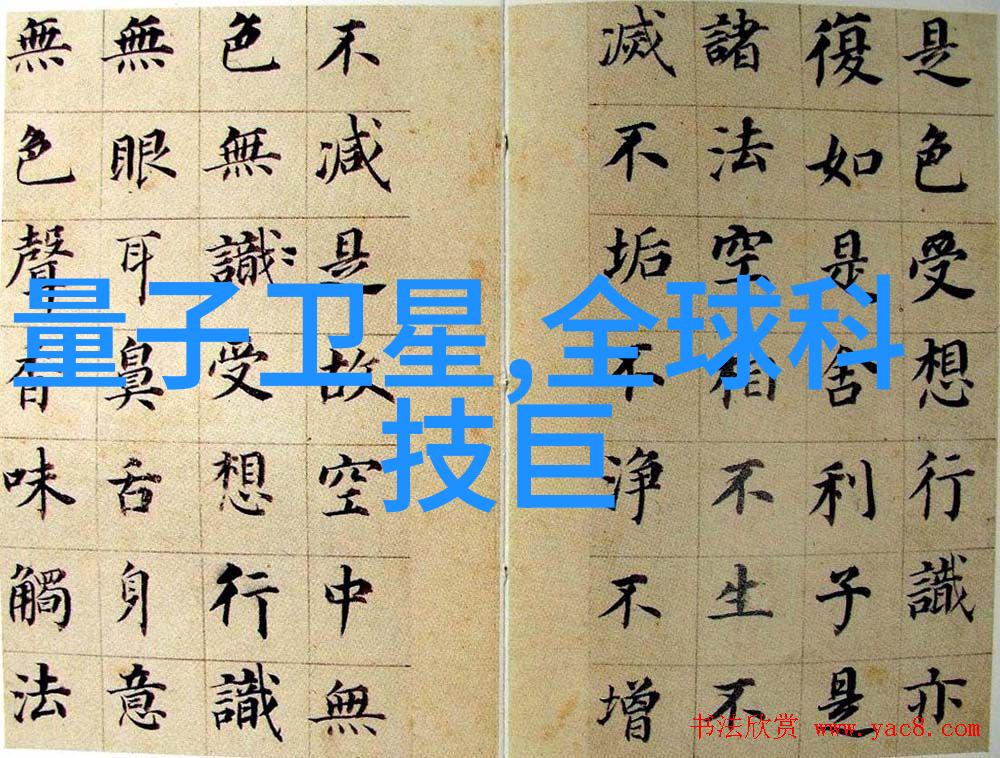 是色受想行識亦
復如是舍利子是
諸法空相不生不
滅不垢不淨不增
不減是故空中無
色無識受想行識
無眼耳鼻舌身意
無色聲香味觸法
量子卫星,全球科
技巨
书法欣赏 www.yac8.com